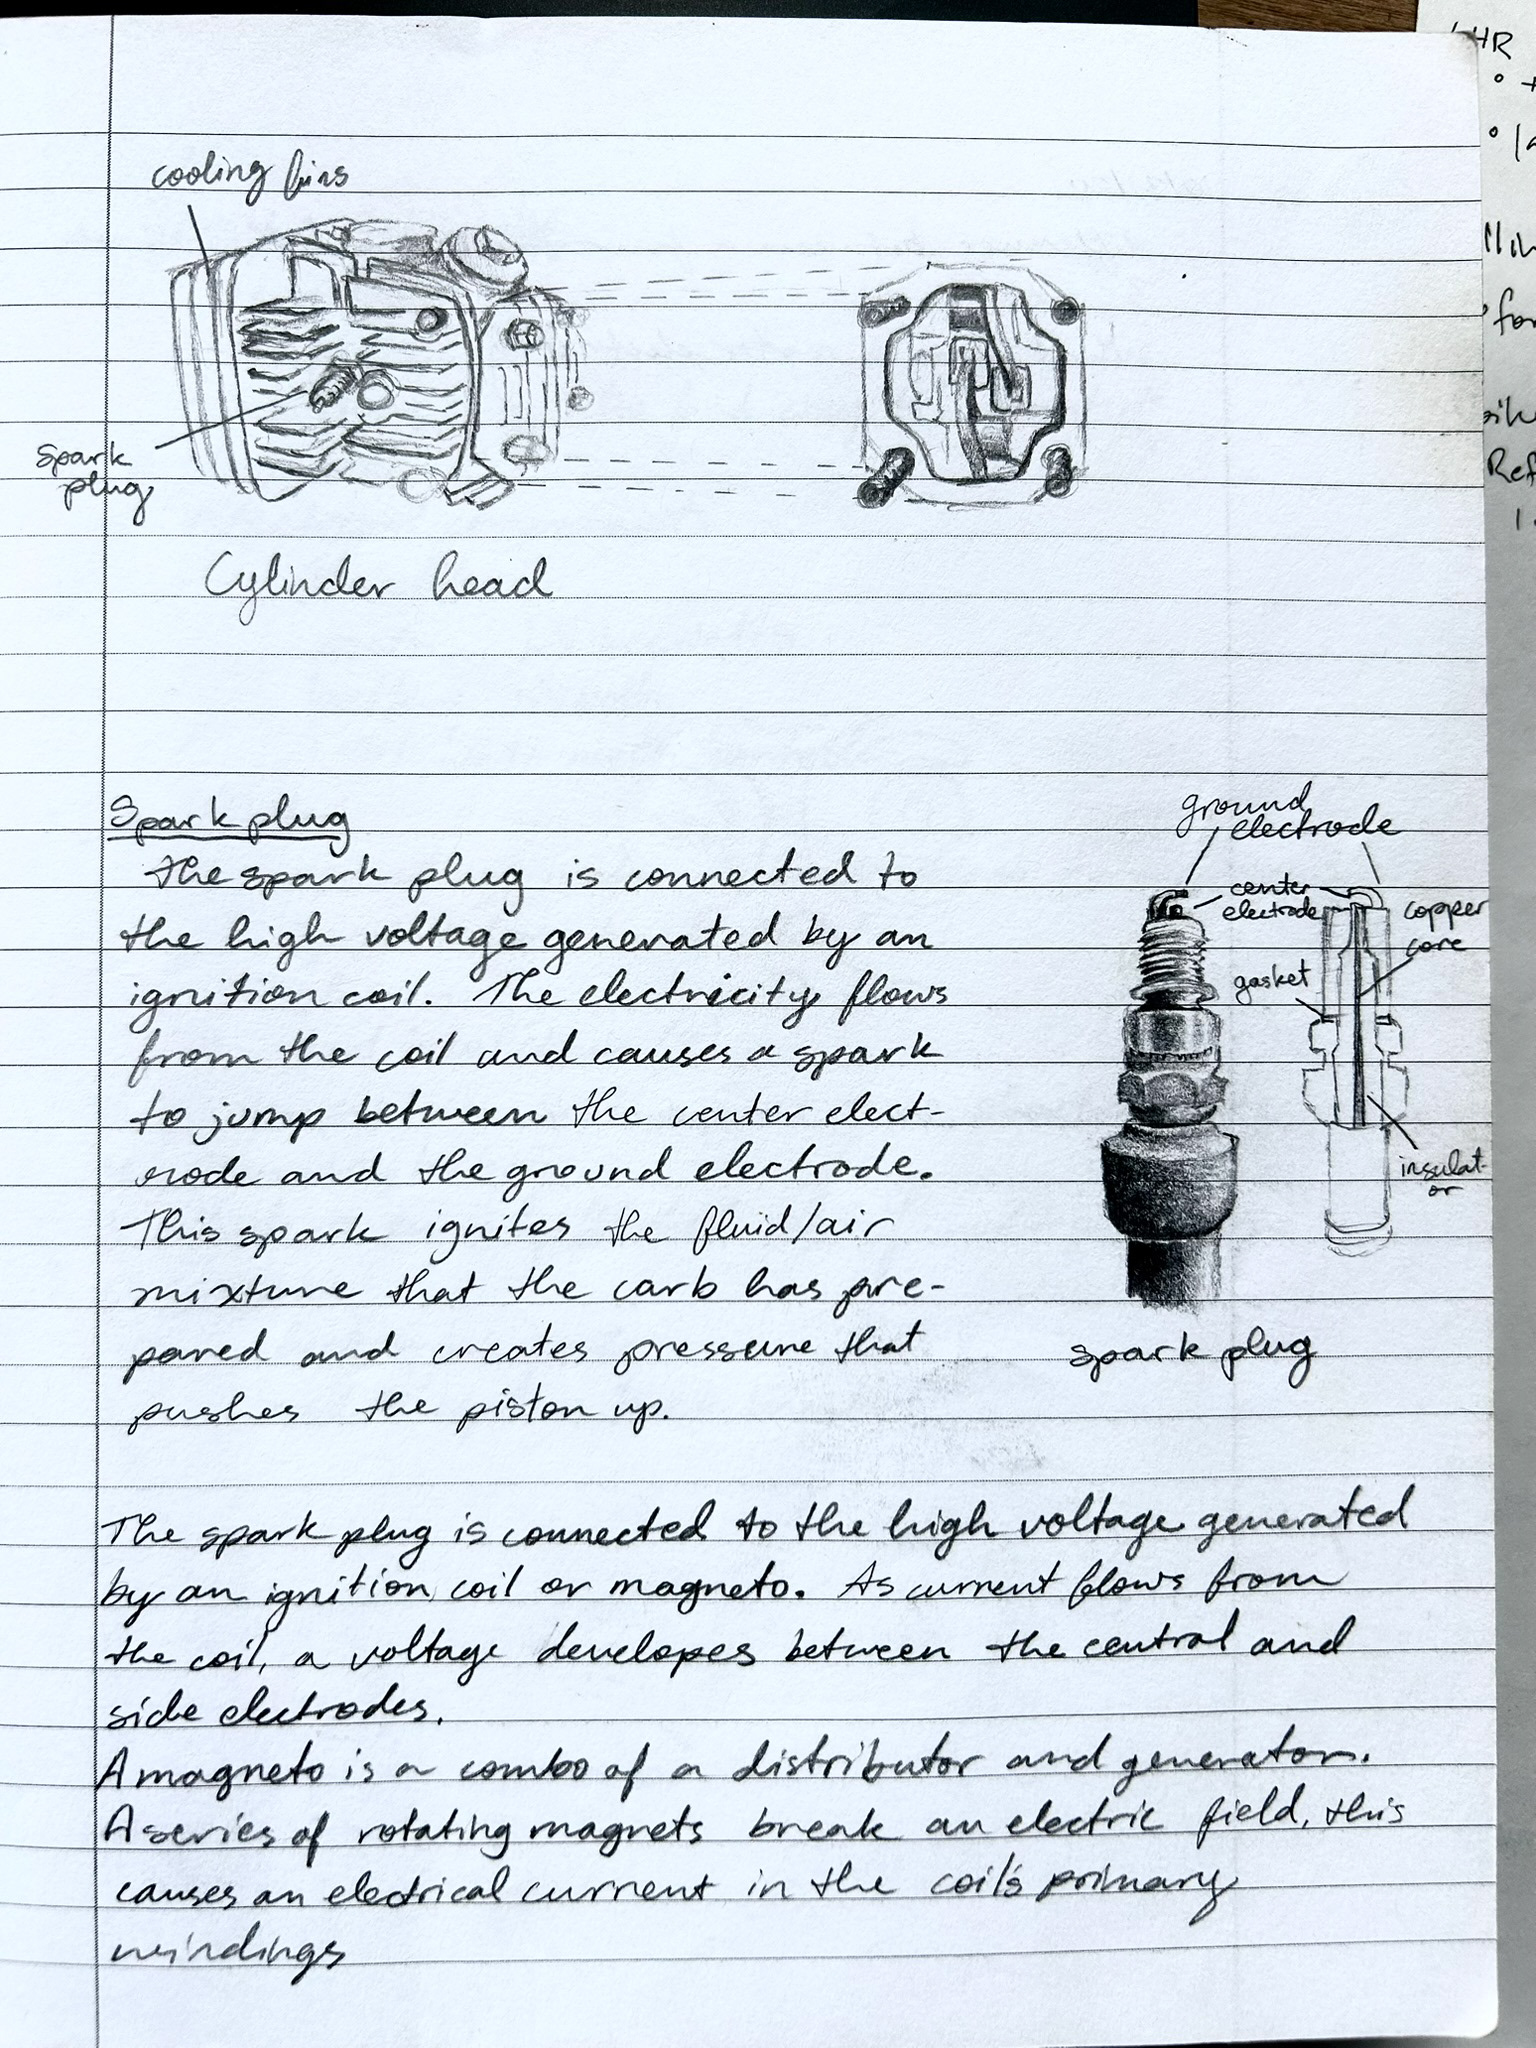 cooling fins
spark
plug
Cylinder head
Spark plug
The spark plug is connected to
the high voltage generated by an
ignition coil. The electricity flows
from the coil and causes a spark
to jump between the center elect-
rode and the ground electrode.
This spark ignites the fluid/air
mixture that the carb has pre-
pared and creates pressure that
pushes the piston up.
ground
electrode
center
electrode
copper
core
gasket
insulat-
or
spark plug
The spark plug is connected to the high voltage generated
by an ignition coil or magneto. As current flows from
the coil, a voltage developes between the central and
side electrodes.
A magneto is a combo of a distributor and generator.
A series of rotating magnets break an electric field, this
causes an electrical current in the coil's primary
windings
HR
for
Ref